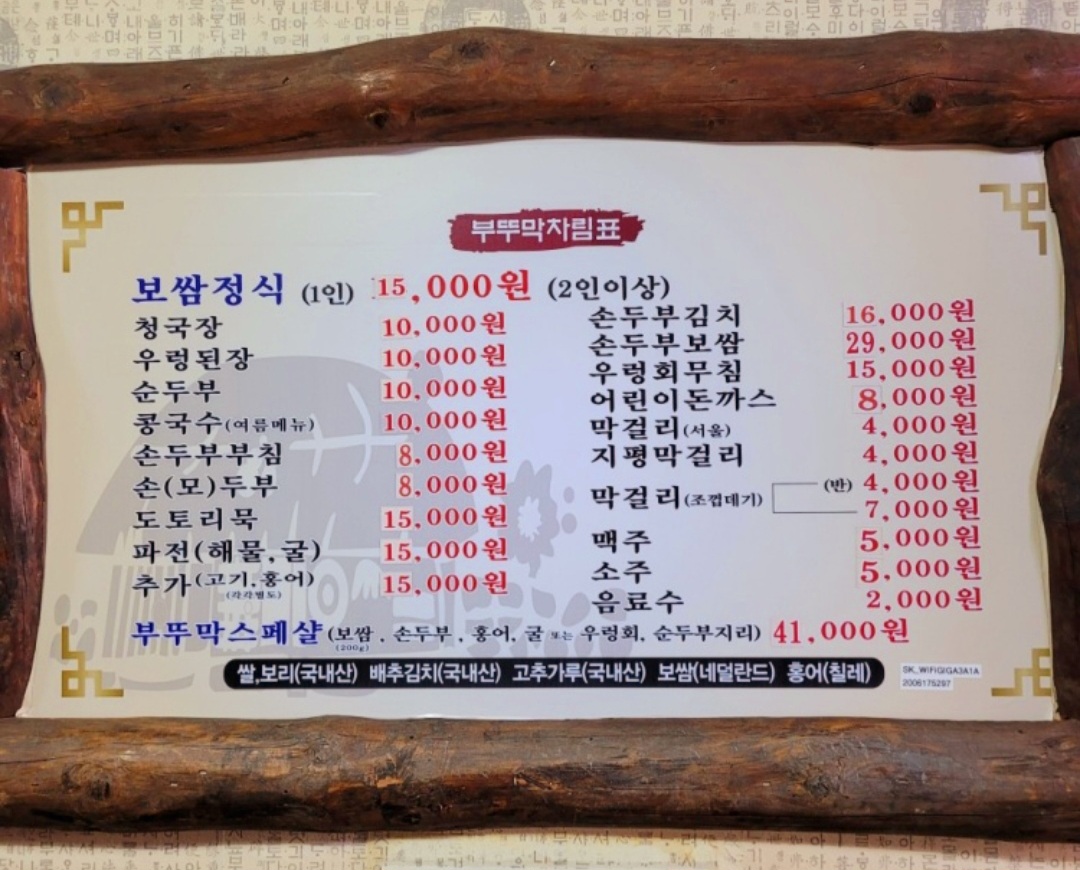 부뚜막차림표
보쌈정식 (1인) 15,000원 (2인이상)
청국장 10,000원
우렁된장 10,000원
순두부 10,000원
콩국수(여름메뉴) 10,000원
손두부부침 8,000원
손(모)두부 8,000원
도토리묵 15,000원
파전(해물,굴) 15,000원
추가(고기,홍어) 15,000원
(각각별도)
손두부김치 16,000원
손두부보쌈 29,000원
우렁회무침 15,000원
어린이돈까스 8,000원
막걸리(서울) 4,000원
지평막걸리 4,000원
막걸리(조껍데기) (반) 4,000원
7,000원
맥주 5,000원
소주 5,000원
음료수 2,000원
부뚜막스페샬(보쌈, 손두부, 홍어, 굴 또는 우렁회, 순두부지리) 41,000원
(200g)
쌀,보리(국내산) 배추김치(국내산) 고추가루(국내산) 보쌈(네덜란드) 홍어(칠레)
SK_WIFIGIGA3A1A
2006175297